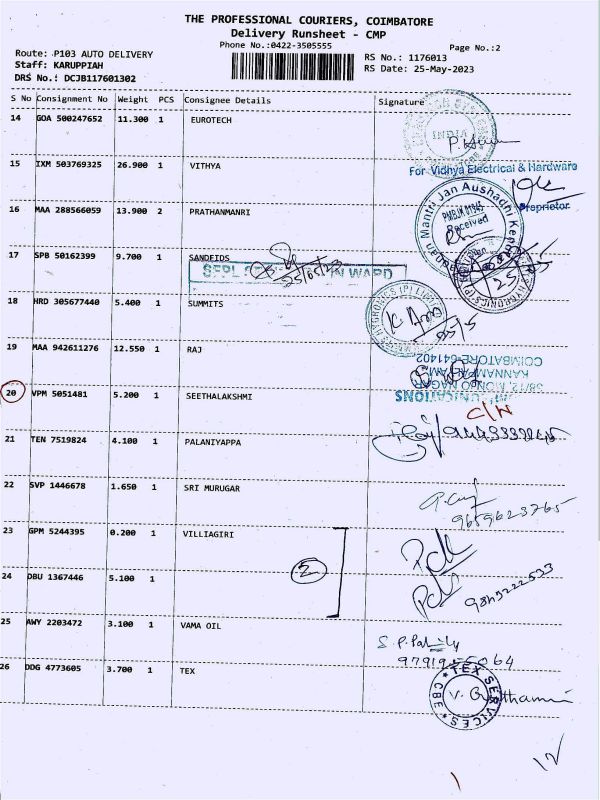 THE PROFESSIONAL COURIERS, COIMBATORE
Delivery Runsheet - CMP
Phone No.:0422-3505555
Page No.:2
Route: P103 AUTO DELIVERY
Staff: KARUPPIAH
DRS No.: DCJB117601302
RS No.: 1176013
RS Date: 25-May-2023
S No Consignment No Weight PCS Consignee Details Signature
14 GOA 500247652 11.300 1 EUROTECH
15 IXM 503769325 26.900 1 VITHYA
For Vidhya Electrical & Hardware
Proprietor
16 MAA 288566059 13.900 2 PRATHANMANRI
Jan Aushadhi
PMBJK 01945
Received
17 SPB 50162399 9.700 1 SANDFIDS
25/05/23
18 HRD 305677440 5.400 1 SUMMITS
19 MAA 942611276 12.550 1 RAJ
38/12, MONGO NAGAR
KANNAMPALAYAM
COIMBATORE-641402
20 VPM 5051481 5.200 1 SEETHALAKSHMI
C/N
21 TEN 7519824 4.100 1 PALANIYAPPA
22 SVP 1446678 1.650 1 SRI MURUGAR
9659623765
23 GPM 5244395 0.200 1 VILLIAGIRI
2
24 DBU 1367446 5.100 1
25 AWY 2203472 3.100 1 VAMA OIL
26 DDG 4773605 3.700 1 TEX
TEX SERVICES
CBE
12